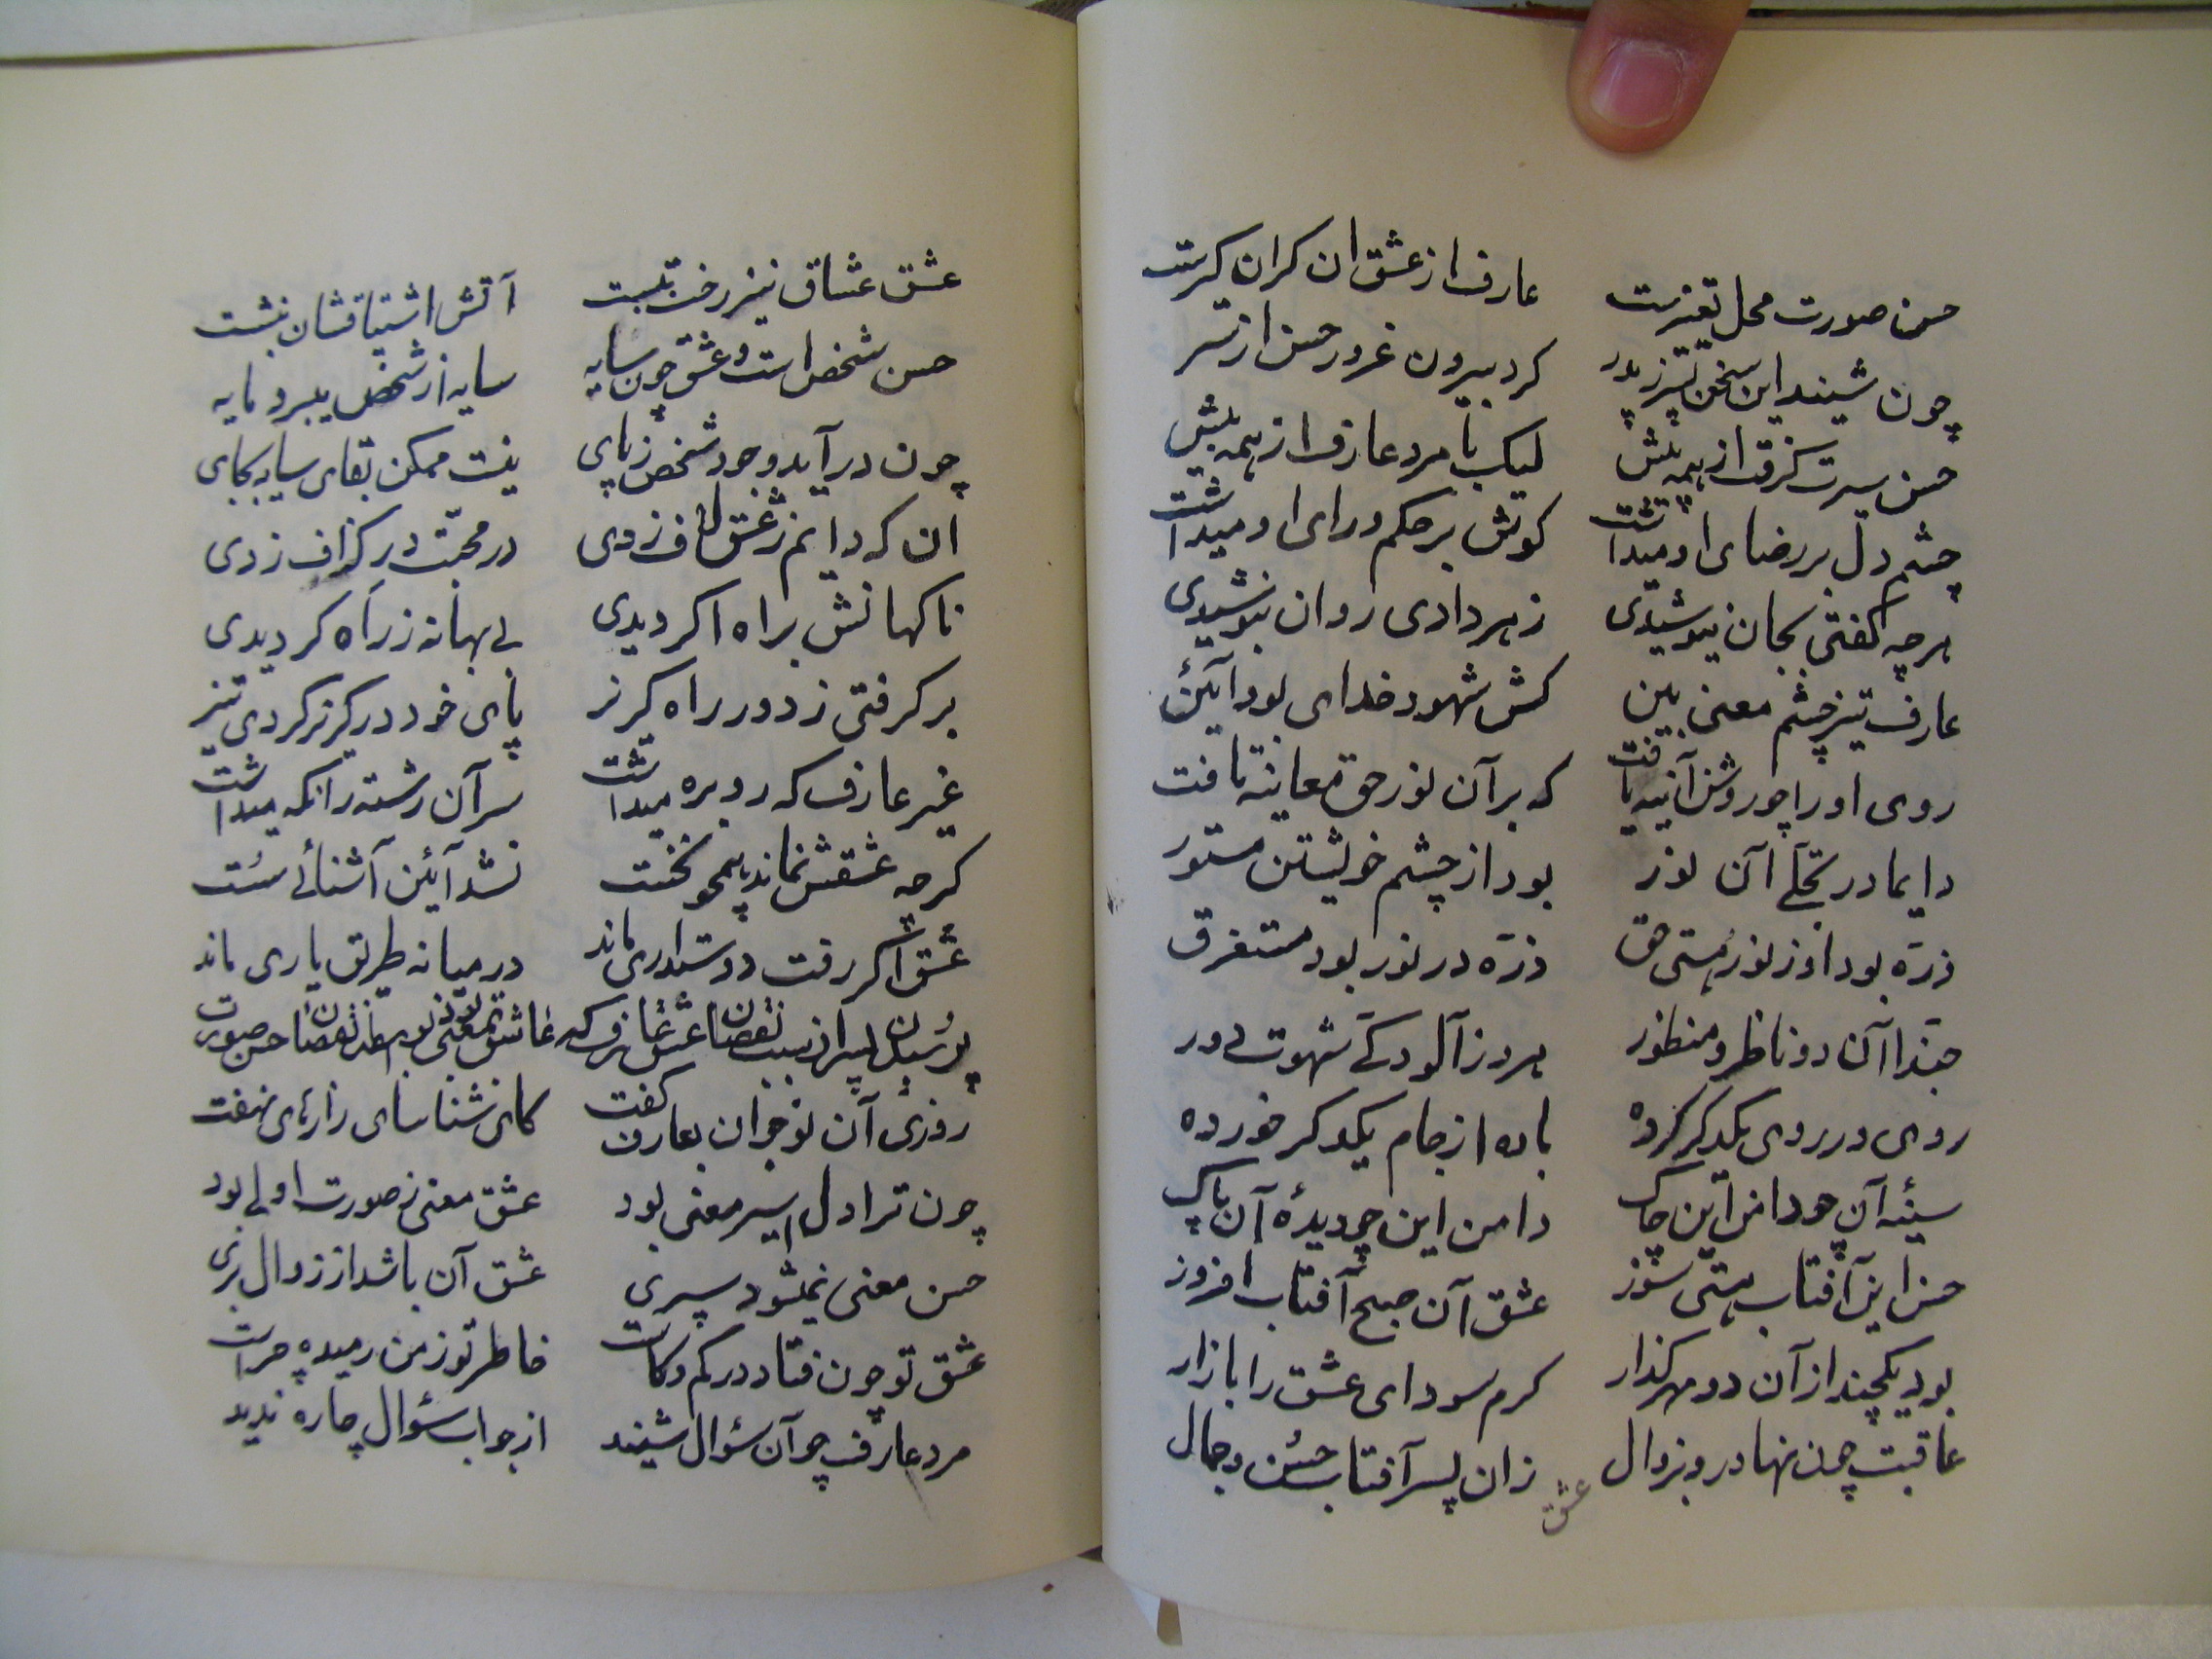 حسن صورت محل تغییرست عارف از عشق ان کران کیرست
چون شیند این سخن پسر ز پدر کرد بیرون غرور حسن از سر
حسن سیرت کرفت از همه پیش لیک با مرد عارف از همه بیش
چشم دل بر رضای او میداشت کوش بر حکم و رای او میداشت
هرچه کفتی بجان نیوشیدی زهر دادی روان بنوشیدی
عارف تیز چشم معنی بین کش شهود خدای بود آئین
روی او را چو روشن آئینه یافت که بر آن نور حق معاینه تافت
دایما در تجلے آن نور بود از چشم خویشتن مستور
ذرّه بود او ز نور هستی حق ذرّه در نور بود مستغرق
حبّذا آن دو ناظر و منظور هر دو ز آلودکے شهوت دور
روی در روی یکدکر کرده باده از جام یکدکر خورده
سینهٔ آن چو دامن این چاک دامن این چو دیدهٔ آن پاک
حسن این آفتاب هستی سوز عشق آن صبح آفتاب افروز
بود یکچند از آن دو مهر کذار کرم سودای عشق را بازار
عاقبت چون نهاد رو بزوال زان پسر آفتاب حسن و جمال
عشق
عشق عشاق نیز رخت ببست آتش اشتیاقشان بنشست
حسن شخص است و عشق چون سایه سایه از شخص میبرد مایه
چون درآید وجود شخص ز پای نیست ممکن بقای سایه بجای
ان که دایم ز عشق لاف زدی در محبّت در کزاف زدی
ناکهانش براه اکر دیدی بے بهانه ز راه کردیدی
برکرفتی ز دور راه کریز پای خود در کریز کردی تیز
غیر عارف که رو بره میداشت سر آن رشته را نکه میداشت
کرچه عشقش نماند همچو نخست نشد آئین آشنائے سست
عشق اکر رفت دوستداری ماند در میانه طریق یاری ماند
پرسیدن پسر از سبب نقصان عشق عارف که عاشق معنی بود بعد از نقصان حسن صورت
روزی آن نوجوان بعارف کفت کای شناسای رازهای نهفت
چون ترا دل اسیر معنی بود عشق معنی ز صورت اولی بود
حسن معنی نمیشود سپری عشق آن باشد از زوال بری
عشق تو چون فتاد در کم و کاست خاطر تو ز من رمیده چراست
مرد عارف چو آن سؤال شیند از جواب سؤال چاره ندید